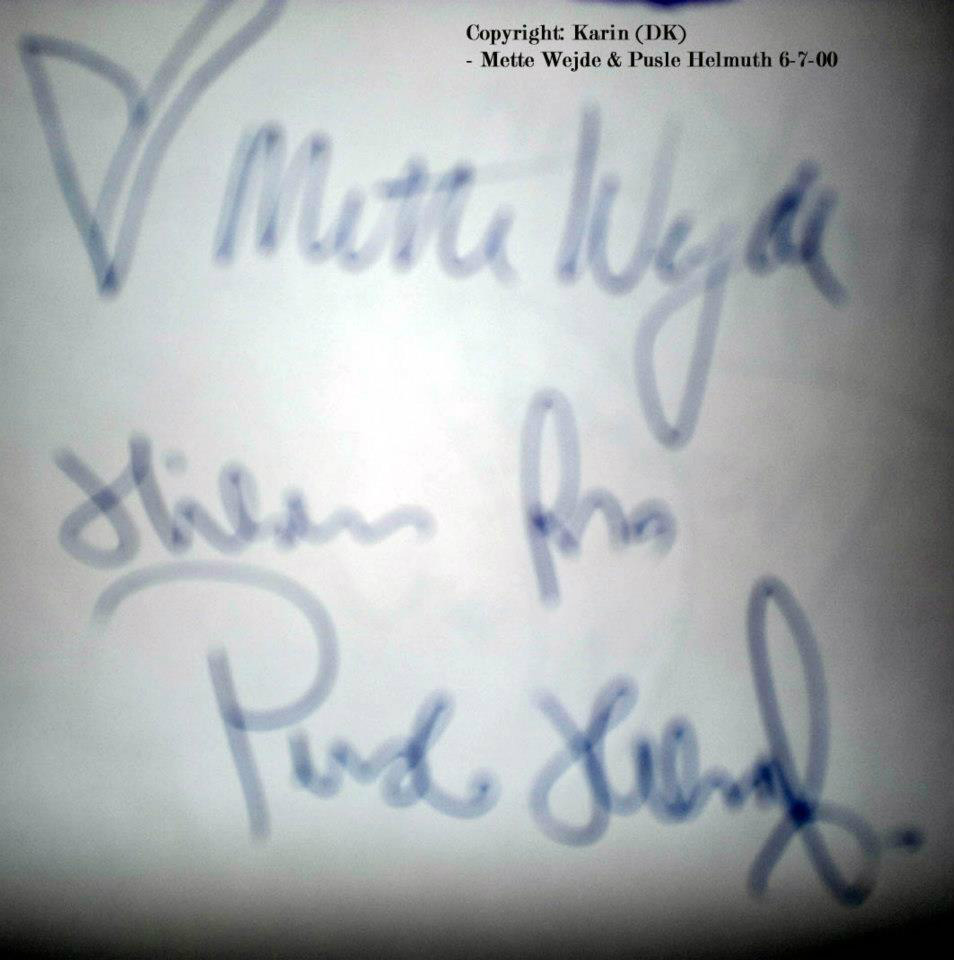 Copyright: Karin (DK)
- Mette Wejde & Pusle Helmuth 6-7-00
Mette Wejde
Hilsen fra
Pusle Helmuth